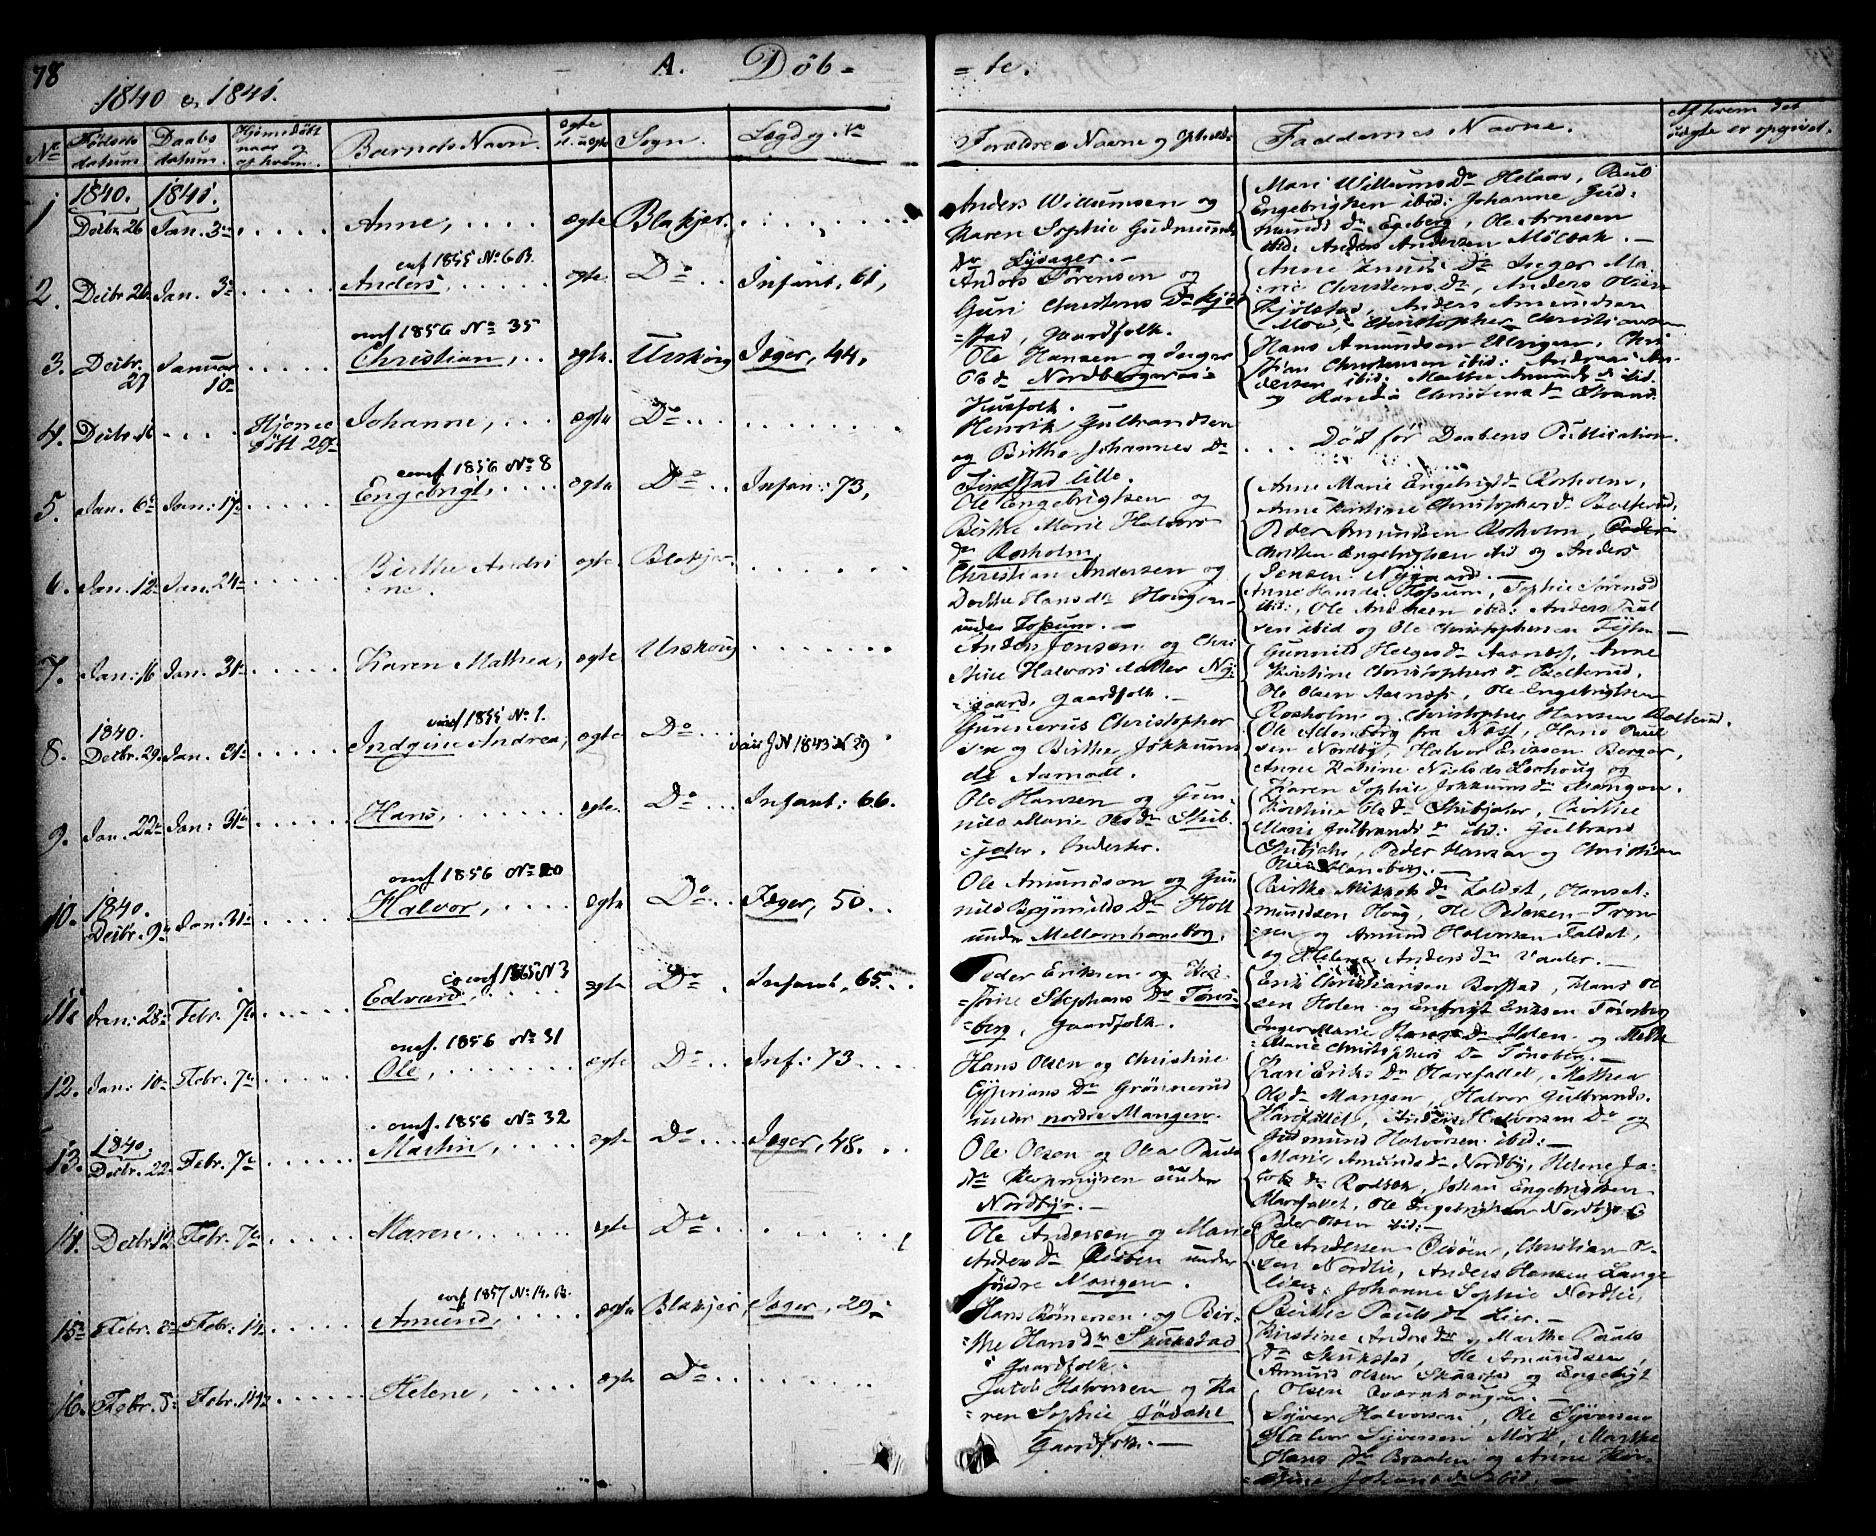 78
A. Døb =
= te.
1840 og 1841.
No
Fødsels datum
Daabs datum.
Hjemedøbt naar og af hvem.
Barnets Navn.
ægte el. uægte
Sogn.
Lægd og No
Forældrenes Navne og
Faddernes Navne.
Af hvem det uægte er opgivet.
1
1840. Decbr. 26
1841. Jan. 3
Anne,
ægte
Blakjer
Anders Willumsen og
Karen Sophie Gudmunds
Dr Lysager. —
Mari Willums Dr Helaas, Poul
Engebrigtsen ibid: Johanne Gud:
munds Dr Egeberg, Ole Arnesen
ibid: Anders Andersen Mølbak. —
2.
Decbr. 26
Jan. 3
conf 1855 No 6 B.
Anders,
ægte
Do
Infant, 61,
Anders Sørensen og
Guri Christens Dr Kjøl
stad, Gaardfolk.
Anne Knuds Dr Jæger, Ma
rie Christens Dr, Anders Olsen
Kjølstad, Anders Amundsen
Moe, Christopher Christiansen
3.
Decbr. 27
Januar 10
conf 1856 No 35
Christian,
ægte
Urskoug
Jæger, 44,
Ole Hansen og Inger
Ols Dr Nordbergeraas
Huusfolk.
Hans Amundsen Mangen, Chri
stian Christensen ibid: Andreas An
dersen ibid: Marthe Amunds Dr ibid.
og Karen Christens Dr Strand
4.
Decbr. 16
Hjeme døbt 29
Johanne,
ægte
Do
Henrik Gulbrandsen
og Birthe Johannes Dr
Finstad lille.
Død før Daabens Publication.
5.
Jan. 6
Jan: 17
conf 1856 No 8
Engebrigt,
ægte
Do
Infan: 73,
Ole Engebrigtsen og
Birthe Marie Halvors
Dr Rosholm
Anne Marie Engebrigts Dr Rosholm,
Anne Kirstine Christophers Dr Bolterud,
Peder Amundsen Rosholm,
Christen Engebrigtsen ibid og Anders
Jensen Nygaard. —
6.
Jan. 12
Jan. 24
Birthe Andri
ne.
ægte
Blakjer
Christian Andersen og
Dorthe Hans Dr Hougen
under Fossum. —
Anne Hans Dr Fossum, Sophie Sørens Dr
ibid:, Ole Andersen ibid: Anders Poul
sen ibid og Ole Christophersen
7.
Jan: 16
Jan. 31
Karen Mathea,
ægte
Urskoug
Anders Jensen og Chri
stine Halvors datter Ny
gaard, Gaardfolk. —
Gunnild Helges Dr Aarnæs, Anne
Kirstine Christophers Dr Bolterud,
Ole Olsen Aarnæs, Ole Engebrigtsen
Rosholm og Christopher Hansen Bolterud.
8.
1840. Decbr. 29.
Jan. 31
conf 1855 No 1.
Indgine Andrea,
ægte
Do
1843 No 29
Gunnerus Christopher
sen og Birthe Jokkums
Dr Aamodt.
Ole Altenborg fra Næs, Hans Poul
sen Nordby, Halvor Eriksen Berger,
Anne Katrine Niels Dr Lerhoug og
Karen Sophie Jokkums Dr Mangen.
9.
Jan. 22
Jan: 31
Hans,
ægte
Do
Infant: 66.
Ole Hansen og Gun
nild Marie Ols Dr Skib
jater, Inderster.
Kirstine Ols Dr Skibjater, Birthe
Marie Gulbrands Dr ibid: Gulbrand
Skibjater, Peder Hansen og Christian
Olsen Haneborg. —
10.
1840. Decbr. 9
Jan. 31
conf 1856 No 20
Halvor,
ægte
Do
Jæger, 50.
Ole Amundsen og Gun
nild Brynilds Dr Holt
under Mellomhaneborg.
Birthe Mikkels Dr Faldet, Hans A
mundsen Houg, Ole Pedersen Tron
sen og Amund Halvorsen Faldet,
og Helene Anders Dr Vaaler. —
11.
Jan: 28
Febr. 7
conf 1865 N 3
Edvard,
ægte
Do
Infant, 65.
Peder Eriksen og Kri
stine Stephans Dr Tøns
berg, Gaardfolk.
Erik Christiansen Borstad, Hans Ol
sen Holen og Engebrigt Eriksen Tønsberg
Inger Marie Hans Dr Holen og Marthe
Marie Christophers Dr Tønsberg. —
12.
Jan: 10
Febr. 7
conf. 1856 No 31
Ole,
ægte
Do
Inf: 73
Hans Olsen og Christine
Cyprians Dr Grønnerud
under nordre Mangen.
Kari Eriks Dr Harefallet, Mathea
Ols Dr Mangen, Halvor Gulbrands.
Harefallet, Anders Halvorsen Do og
Gudmund Halvorsen ibid: —
13.
1840. Decbr. 22
Febr. 7
conf. 1856 No 32
Martin,
ægte
Do
Jæger, 48.
Ole Olsen og Olea Pauls
Dr Klopmyren under
Nordbye. —
Marie Amunds Dr Nordby, Helene Ja
cobs Dr Rodsen, Johan Engebrigtsen
Harefallet, Ole Engebrigtsen Nordbye &
Peder Olsen ibid: —
14.
Decbr. 12
Febr. 7
Maren
ægte
Do
Ole Andersen og Marie
Anders Dr under
søndre Mangen.
Ole Andersen, Christian Ol
sen Nordlie, Anders Hansen Lange
lien, Johanne Sophie Nordlie,
Birthe Pauls Dr Lier. —
15
Febr. 8
Febr: 14
conf 1857 No 14. B.
Amund,
ægte
Blakjer
Jæger, 29
Hans Rømersen og Bir
the Hans Dr Skukstad
Gaardfolk.
Kirstine Andre Dr og Marthe Pauls
Dr Skukstad, Ole Amundsen,
Amund Olsen Skukstad og Engebrigt
Olsen Kværnhougen. —
16.
Febr. 5
Febr. 14
Helene,
ægte
Do
Jacob Halvorsen og Ka
ren Sophie Jødahl
Gaardfolk. —
Syver Halvorsen, Ole Syversen
Halvor Syversen Mork, Marthe
Hans Dr Braaten og Anne Kir
stine Johans Dr ibid. —